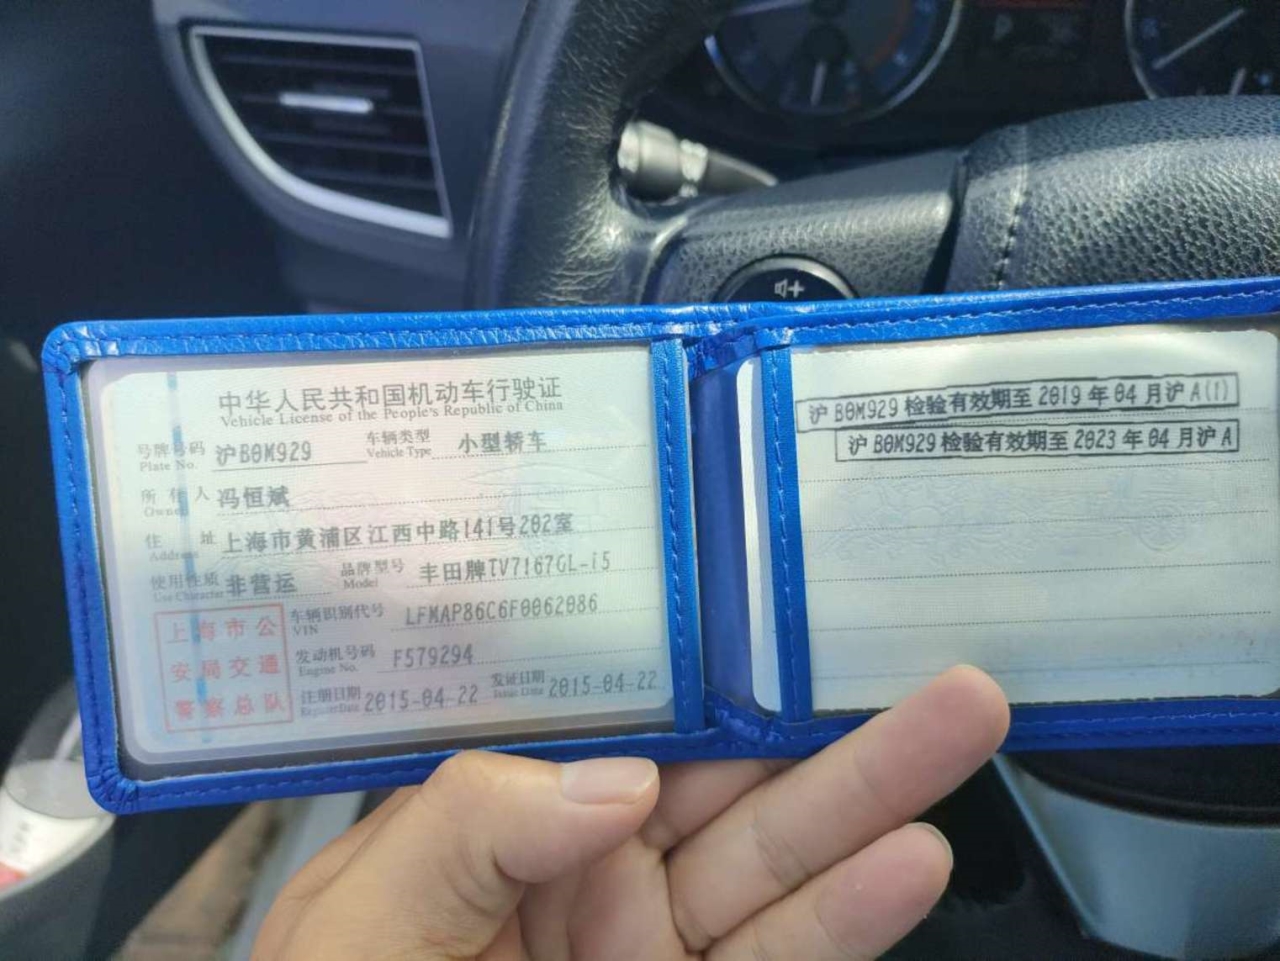 中华人民共和国机动车行驶证
Vehicle License of the People's Republic of China
号牌号码 沪B0M929 车辆类型 小型轿车
Plate No. Vehicle Type
所有人 冯恒斌
Owner
住址 上海市黄浦区江西中路141号202室
Address
使用性质 非营运 品牌型号 丰田牌TV7167GL-i5
Use Character Model
车辆识别代号 LFMAP86C6F0062086
VIN
发动机号码 F579294
Engine No.
注册日期 2015-04-22 发证日期 2015-04-22
Register Date Issue Date
上海市公
安局交通
警察总队
沪B0M929检验有效期至2019年04月沪A(1)
沪B0M929检验有效期至2023年04月沪A